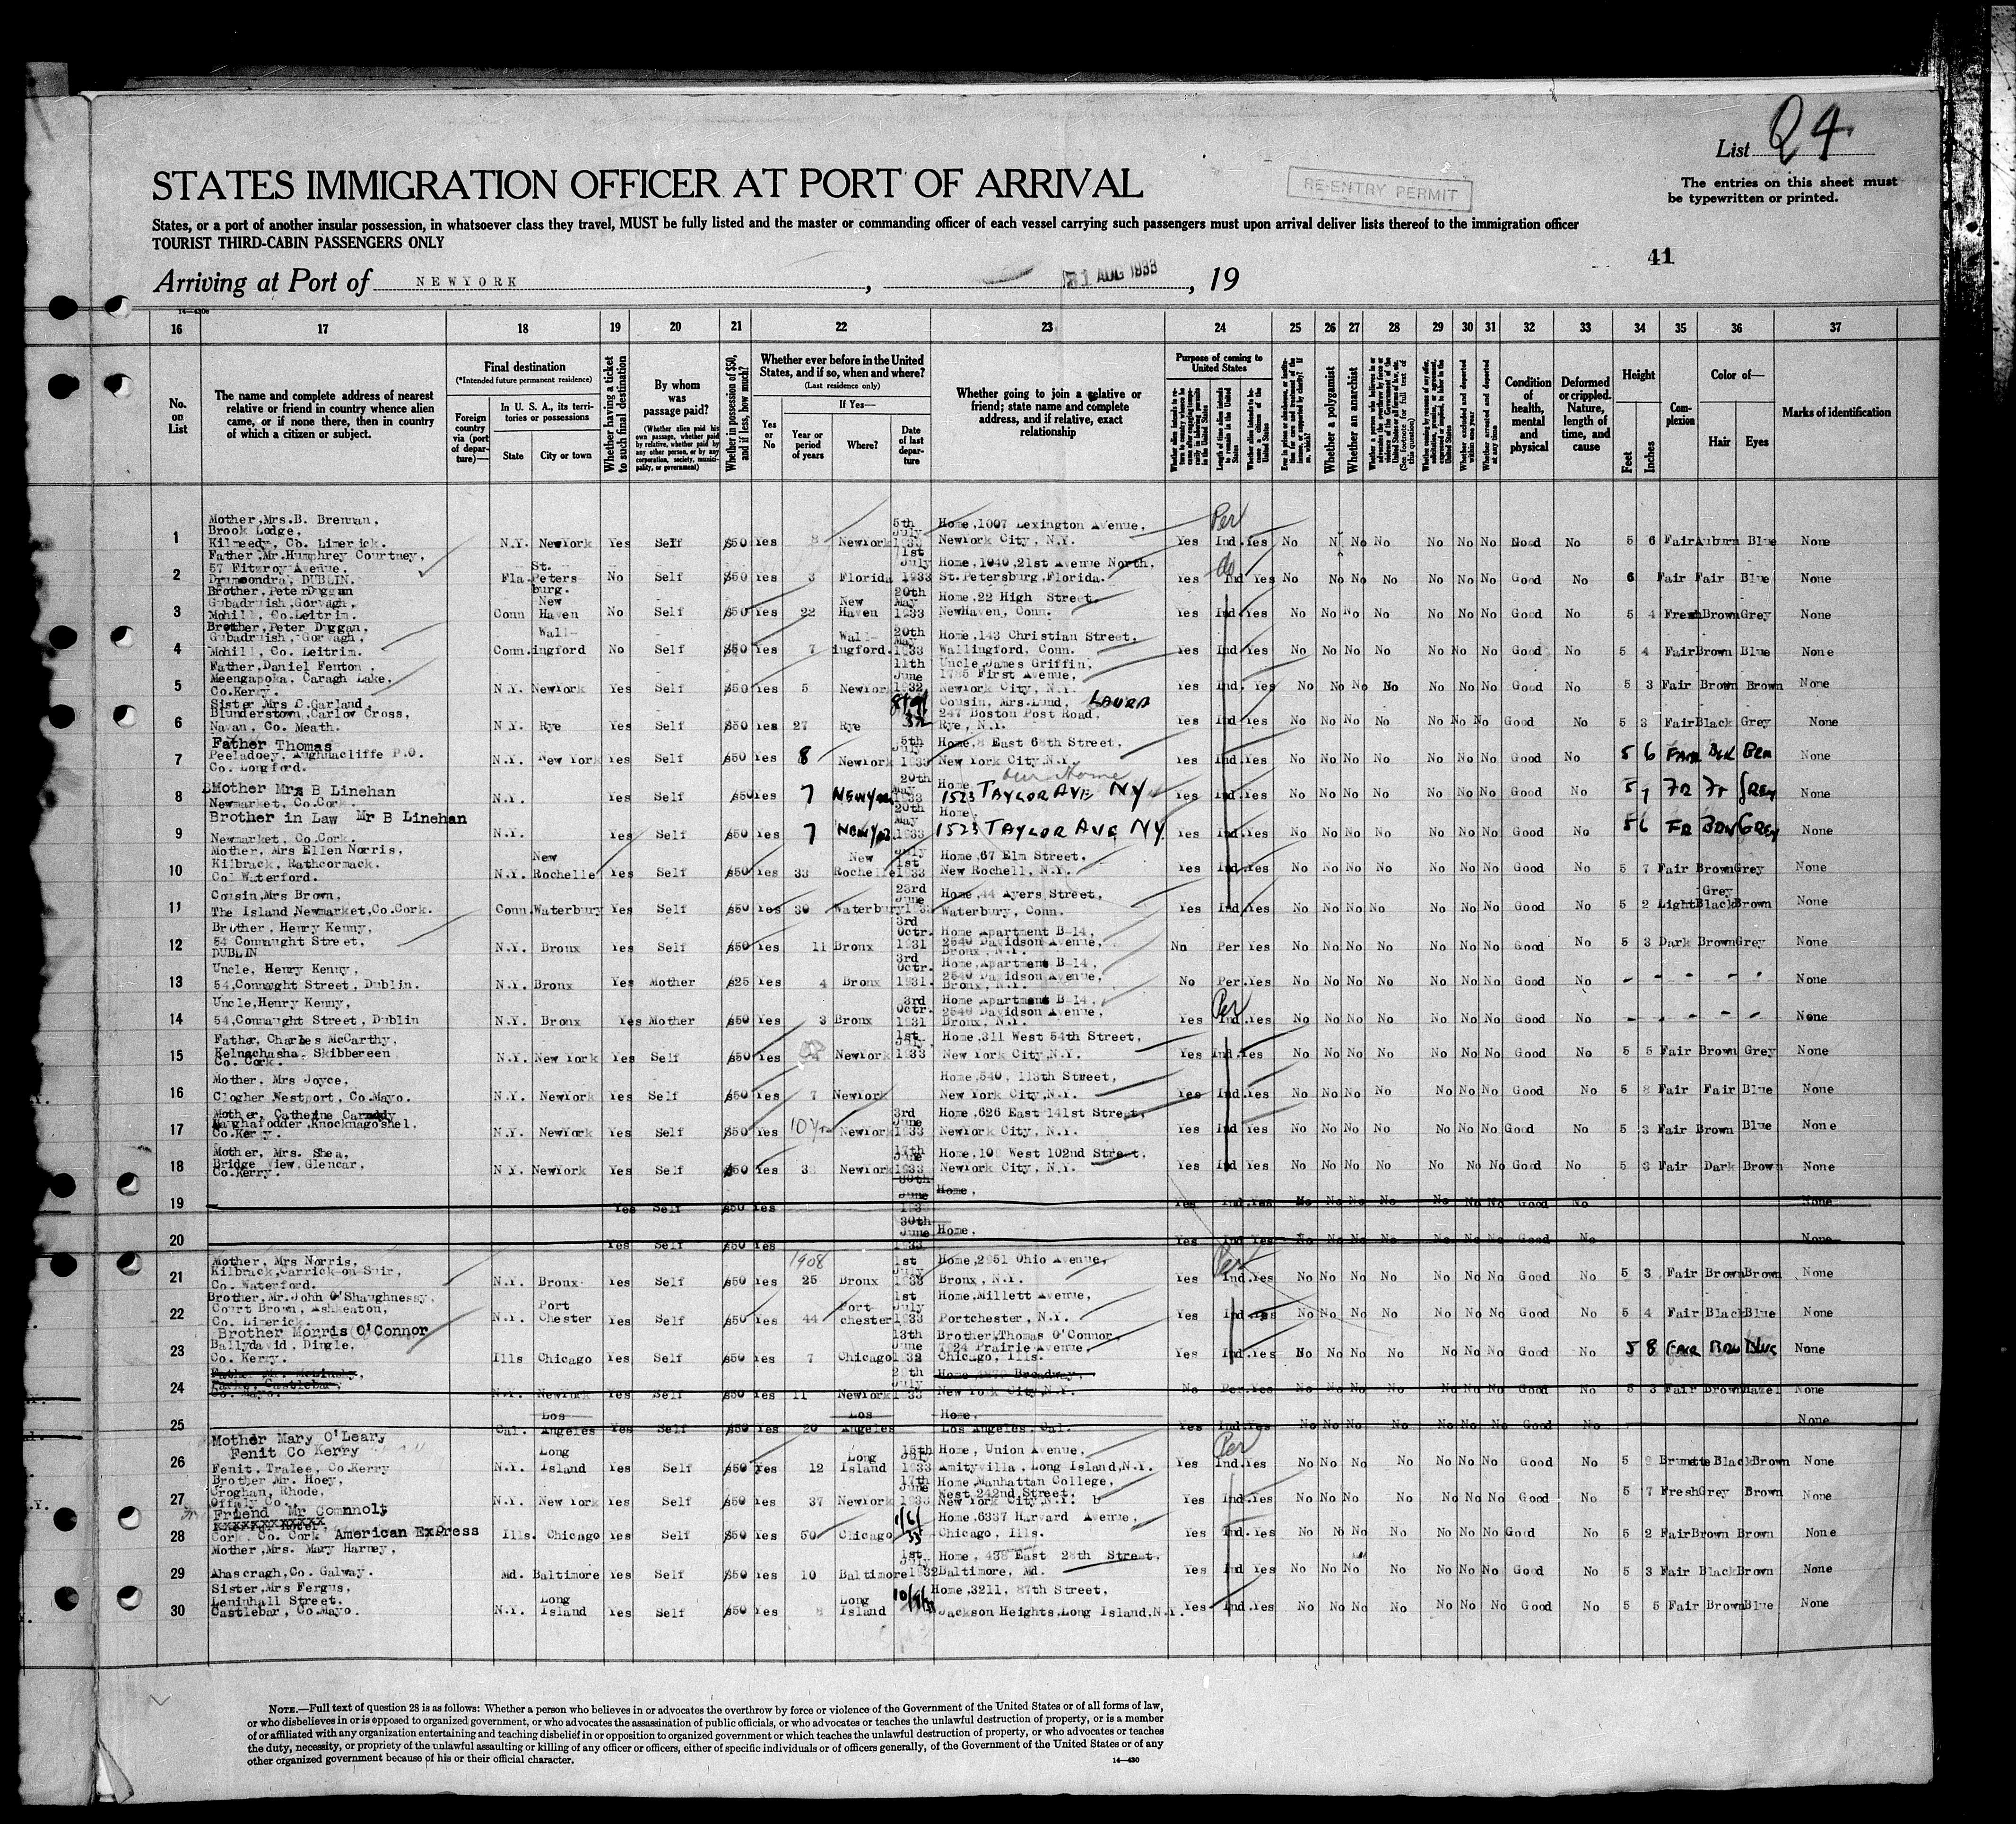 List 24
STATES IMMIGRATION OFFICER AT PORT OF ARRIVAL
RE-ENTRY PERMIT
The entries on this sheet must
be typewritten or printed.
States, or a port of another insular possession, in whatsoever class they travel, MUST be fully listed and the master or commanding officer of each vessel carrying such passengers must upon arrival deliver lists thereof to the immigration officer
TOURIST THIRD-CABIN PASSENGERS ONLY
41
Arriving at Port of NEWYORK , AUG 1933 , 19
16 17 18 19 20 21 22 23 24 25 26 27 28 29 30 31 32 33 34 35 36 37
No. on List
The name and complete address of nearest
relative or friend in country whence alien
came, or if none there, then in country
of which a citizen or subject.
Final destination
(*Intended future permanent residence)
Foreign country via (port of departure)—
In U. S. A., its territories or possessions
State
City or town
Whether having a ticket to such final destination
By whom was passage paid?
(Whether alien paid his own passage, whether paid by relative, whether paid by any other person, or by any corporation, society, municipality, or government)
Whether in possession of $50, and if less, how much?
Whether ever before in the United
States, and if so, when and where?
(Last residence only)
Yes or No
If Yes—
Year or period of years
Where?
Date of last departure
Whether going to join a relative or
friend; state name and complete
address, and if relative, exact
relationship
Purpose of coming to United States
Whether a polygamist
Whether an anarchist
Condition of health, mental and physical
Deformed or crippled. Nature, length of time, and cause
Height
Feet
Inches
Complexion
Color of—
Hair
Eyes
Marks of identification
1 Mother,Mrs.B. Brennan, Brook Lodge, Kilmeedy, Co. Limerick. N.Y. NewYork Yes Self $50 Yes NewYork 5th July 1933 Home,1007 Lexington Avenue, NewYork City, N.Y. Per Yes Ind. Yes No No No No No No Good No 5 6 Fair Auburn Blue None
2 Father,Mr.Humphrey Courtney, 57 Fitzroy Avenue, Drumcondra, DUBLIN. Fla St. Petersburg. No Self $50 Yes 3 Florida 1st July 1933 Home,1040,21st Avenue North, St.Petersburg,Florida. do Yes Ind Yes No No No No No No No Good No 6 Fair Fair Blue None
3 Brother,Peter Duggan Gubadruish,Gorvagh, Mohill, Co.Leitrim. Conn New Haven No Self $50 Yes 22 New Haven 20th May 1933 Home,22 High Street. NewHaven, Conn. Yes Ind. Yes No No No No No No No Good No 5 4 Fresh Brown Grey None
4 Brother, Peter Duggan, Gubadruish, Gorvagh, Mohill, Co. Leitrim. Conn. Wallingford No Self $50 Yes 7 Wallingford. 20th May 1933 Home,143 Christian Street, Wallingford, Conn. Yes Ind Yes No No No No No No No Good No 5 4 Fair Brown Blue None
5 Father,Daniel Fenton, Meengapoka, Caragh Lake, Co.Kerry. N.Y. NewYork Yes Self $50 Yes 5 NewYork 11th June 1932 Uncle,James Griffin, 1785 First Avenue, NewYork City, N.Y. Yes Ind. Yes No No No No No No No Good No 5 3 Fair Brown Brown None
6 Sister Mrs C.Garland, Blunderstown,Carlow Cross, Navan, Co. Meath. N.Y. Rye Yes Self $50 Yes 27 Rye Cousin, Mrs.Lund, LAURA 247 Boston Post Road, Rye, N.Y. Yes Ind Yes No No No No No No No Good No 5 3 Fair Black Grey None
7 Father Thomas Peeladoey, Aughnacliffe P.O. Co. Longford. N.Y. New York Yes Self $50 Yes 8 NewYork 5th July 1933 Home,8 East 68th Street, New York City,N.Y. Yes Ind. Yes No No No No No No No Good No 5 6 FAIR BRN None
8 Mother Mrs B Linehan Newmarket, Co.Cork. N.Y. Yes Self $50 Yes 7 NEWYORK 20th May 1933 Home, our Home 1523 TAYLOR AVE NY Yes Ind. Yes No No No No No No No Good No 5 7 FR Fr GREY None
9 Brother in Law Mr B Linehan Newmarket, Co.Cork. N.Y. Yes Self $50 Yes 7 NEWYORK 20th May 1933 Home. 1523 TAYLOR AVE NY Yes Ind. Yes No No No No No No No Good No 5 6 FR BRN GREY None
10 Mother, Mrs Ellen Norris, Kilbrack, Rathcormack. Co. Waterford. N.Y. New Rochelle Yes Self $50 Yes 33 New Rochelle July 1st 1933 Home,67 Elm Street. New Rochell, N.Y. Yes Ind. Yes No No No No No No No Good No 5 7 Fair Brown Grey None
11 Cousin,Mrs Brown, The Island,Newmarket,Co.Cork. Conn. Waterbury Yes Self $50 Yes 30 Waterbury 23rd June Home,44 Ayers Street, Waterbury, Conn. Yes Ind. Yes No No No No No No No Good No 5 2 Light Grey Black Brown None
12 Brother, Henry Kenny, 54 Connaught Street, DUBLIN N.Y. Bronx Yes Self $50 Yes 11 Bronx 3rd Octr. 1931 Home Apartment B-14, 2540 Davidson Avenue, Bronx, N.Y. No Per Yes No No No No No No No Good No 5 3 Dark Brown Grey None
13 Uncle, Henry Kenny, 54,Connaught Street, Dublin. N.Y. Bronx Yes Mother $25 Yes 4 Bronx 3rd Octr. 1931. Home,Apartment B-14, 2540 Davidson Avenue, Bronx, N.Y. No Per. Yes No No No No No No No Good No - - - - - None
14 Uncle,Henry Kenny, 54,Connaught Street, Dublin N.Y. Bronx Yes Mother $50 Yes 3 Bronx 3rd Octr. 1931 Home Apartment B-14, 2540 Davidson Avenue, Bronx, N.Y. Per Yes Ind. Yes No No No No No No No Good No - - - - - None
15 Father, Charles McCarthy, Skibbereen Co. Cork. N.Y. New York Yes Self $50 Yes NewYork 1st July 1933 Home,311 West 54th Street, New York City,N.Y. Yes Ind. Yes No No No No No No No Good No 5 5 Fair Brown Grey None
16 Mother. Mrs Joyce, Clogher Westport, Co.Mayo. N.Y. NewYork Yes Self $50 Yes 7 NewYork Home,540, 113th Street, New York City,N.Y. Yes Ind. Yes No No No No No No No Good No 5 8 Fair Fair Blue None
17 Mother, Catherine Knocknagoshel. Co.Kerry. N.Y. NewYork Yes Self $50 Yes 10 Yrs NewYork 3rd June 1933 Home,626 East 141st Street, NewYork City, N.Y. Yes Ind Yes No No No No No No No Good No 5 3 Fair Brown Blue None
18 Mother, Mrs. Shea, Bridge View,Glencar, Co.Kerry. N Y. NewYork Yes Self $50 Yes NewYork 17th June 1933 Home,109 West 102nd Street, NewYork City, N.Y. Yes Ind Yes No No No No No No No Good No 5 3 Fair Dark Brown None
19 Yes Self $50 Yes 30th June Home, Yes Ind. Yes No No No No No No No Good No None
20 Yes Self $50 Yes 30th June 1933 Home. Yes Ind Yes No No No No No No No Good No None
21 Mother, Mrs Norris, Kilbrack,Carrick-on-Suir, Co. Waterford. N.Y. Bronx Yes Self $50 Yes 1908 25 Bronx 1st July 1933 Home,2951 Ohio Avenue, Bronx, N.Y. Per Yes Ind. Yes No No No No No No No Good No 5 3 Fair Brown Brown None
22 Brother, Mr.John O'Shaughnessy, Court Brown, Ashkeaton, Co. Limerick. N.Y. Port Chester Yes Self $50 Yes 44 Port-chester 1st July 1933 Home,Millett Avenue, Portchester, N.Y. Yes Ind Yes No No No No No No No Good No 5 4 Fair Black Blue None
23 Brother Morris O'Connor Ballydavid, Dingle, Co. Kerry. Ills Chicago Yes Self $50 Yes 7 Chicago 13th June 1932 Brother,Thomas O'Connor, 7724 Prairie Avenue, Chicago, Ills. Yes Ind. Yes No No No No No No No Good No 5 8 FAIR BRN BLUE None
24 Castlebar, Co. Mayo. N.Y. NewYork Yes Self $50 Yes 11 NewYork July 1933 Broadway, New York City,N.Y. No Per. Yes No No No No No No No Good No 5 3 Fair Brown Hazel None
25 Cal. Los Angeles Yes Self $50 Yes 20 Los Angeles Home. Los Angeles, Cal. Yes Ind. Yes No No No No No No No Good No None
26 Mother Mary O'Leary Fenit Co Kerry Fenit, Tralee, Co.Kerry N.Y. Long Island Yes Self $50 Yes 12 Long Island 15th July 1933 Home, Union Avenue, Amityvilla, Long Island,N.Y. Per Yes Ind. Yes No No No No No No No Good No 5 Brunette Black Brown None
27 Brother Mr. Hoey, Croghan, Rhode, Offaly Co. N.Y. New York Yes Self $50 Yes 37 NewYork 17th June 1933 Home,Manhattan College, West 242nd Street. New York City,N.Y. Yes Ind. Yes No No No No No No No Good No 5 7 Fresh Grey Brown None
28 Friend Mr Connnolt Cork, Co. Cork American ExPress Ills. Chicago Yes Self $50 Yes 50 Chicago 1/6/33 Home,6337 Harvard Avenue, Chicago, Ills. Yes Ind. Yes No No No No No No No Good No 5 2 Fair Brown Brown None
29 Mother,Mrs. Mary Harney, Ahascragh,Co. Galway. Md. Baltimore Yes Self $50 Yes 10 Baltimore 1st July 1932 Home, 438 East 28th Street, Baltimore, Md. Yes Ind Yes No No No No No No No Good No 5 3 Fair Black Brown None
30 Sister,Mrs Fergus, Lenighall Street. Castlebar, Co.Mayo. N.Y. Long Island Yes Self $50 Yes 8 Long Island Home,3211, 87th Street, Jackson Heights,Long Island,N.Y. Yes Ind. Yes No No No No No No No Good No 5 5 Fair Brown Blue None
NOTE.—Full text of question 28 is as follows: Whether a person who believes in or advocates the overthrow by force or violence of the Government of the United States or of all forms of law,
or who disbelieves in or is opposed to organized government, or who advocates the assassination of public officials, or who advocates or teaches the unlawful destruction of property, or is a member
of or affiliated with any organization entertaining and teaching disbelief in or opposition to organized government or which teaches the unlawful destruction of property, or who advocates or teaches
the duty, necessity, or propriety of the unlawful assaulting or killing of any officer or officers, either of specific individuals or of officers generally, of the Government of the United States or of any
other organized government because of his or their official character.
14—430